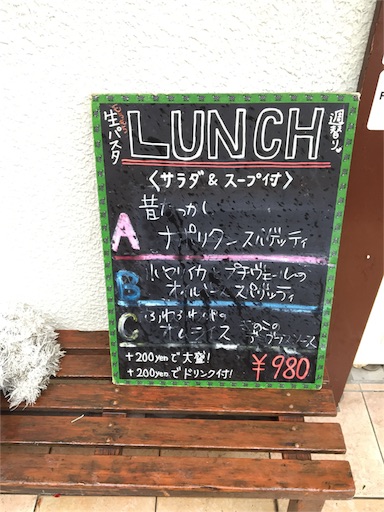 もちもち
生パスタ
LUNCH
週替り
〈サラダ&スープ付〉
A
昔なつかし
ナポリタンスパゲッティ
B
ヤリイカとプチヴェールの
オイルソーススパゲッティ
C
ふわふわ卵の
オムライス
きのこの
デミグラスソース
+200yenで大盛!
+200yenでドリンク付!
¥980